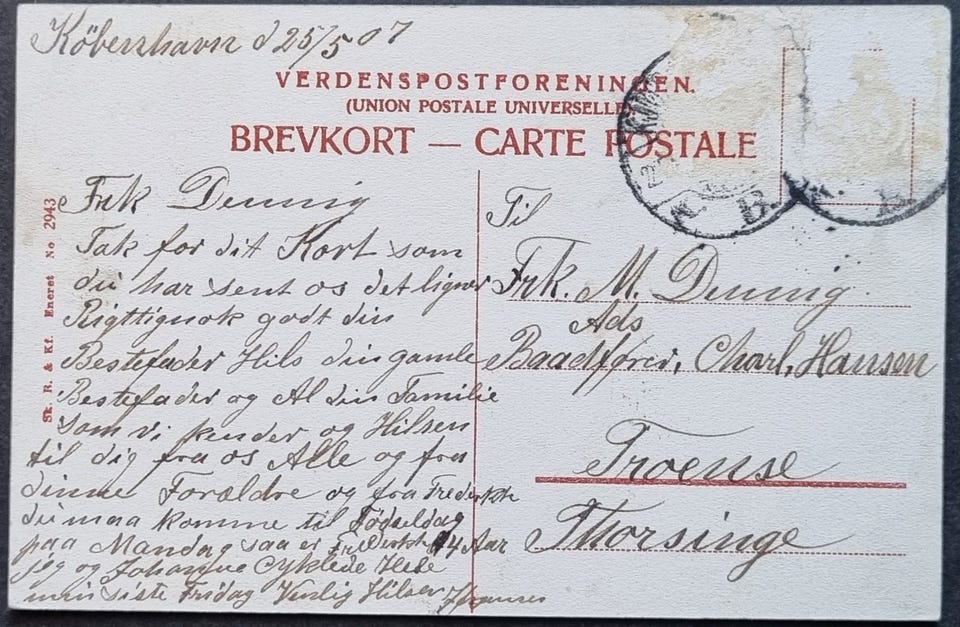 København d 25/5 07
VERDENSPOSTFORENINGEN.
(UNION POSTALE UNIVERSELLE)
BREVKORT — CARTE POSTALE
Sk. B. & Kf. Eneret No 2943
Frk Denning
Tak for dit Kort som
du har sent os det ligner
Rigttignok godt din
Bestefader Hils din gamle
Bestefader og Al din Familie
som vi kender og Hilsen
til dig fra os Alle og fra
dinne Forældre og fra
du maa komme til Fødseldag
paa Mandag saa er 14 Aar
jeg og Johanne Cyklede
min siste Fridag Venlig Hilsen
Til
Frk. M. Denning.
Ads
Baadfører, Charl, Hansen
Troense
Thorsinge
B.